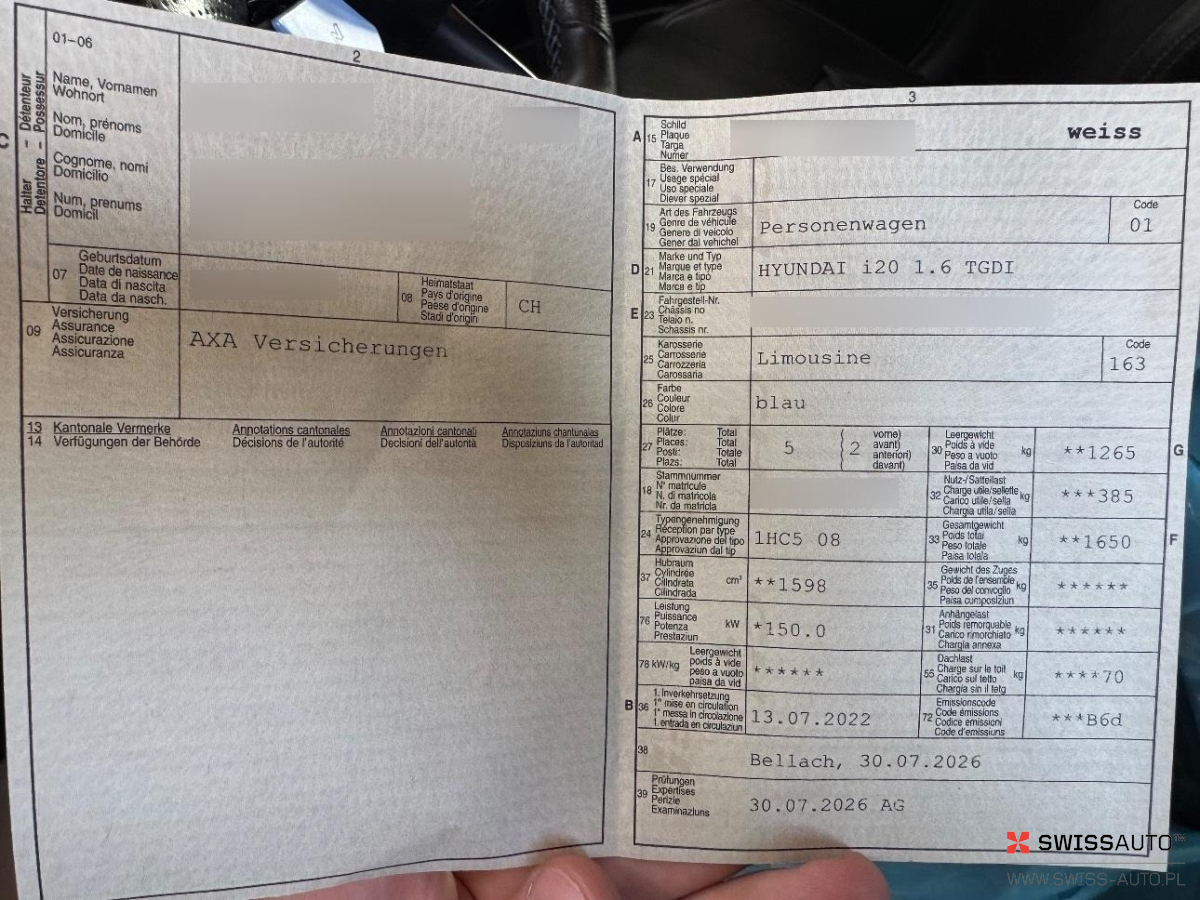 2
01-06
Halter - Détenteur
Detentore - Possessur
Name, Vornamen
Wohnort
Nom, prénoms
Domicile
Cognome, nomi
Domicilio
Num, prenums
Domicil
C
07
Geburtsdatum
Date de naissance
Data di nascita
Data da nasch.
08
Heimatstaat
Pays d'origine
Paese d'origine
Stadi d'origin
CH
09
Versicherung
Assurance
Assicurazione
Assicuranza
AXA Versicherungen
13 Kantonale Vermerke Annotations cantonales Annotazioni cantonali Annotaziuns chantunalas
14 Verfügungen der Behörde Décisions de l'autorité Decisioni dell'autorità Disposiziuns da l'autoritad
3
A 15
Schild
Plaque
Targa
Numer
weiss
17
Bes. Verwendung
Usage spécial
Uso speciale
Diever spezial
19
Art des Fahrzeugs
Genre de véhicule
Genere di veicolo
Gener dal vehichel
Personenwagen
Code
01
D 21
Marke und Typ
Marque et type
Marca e tipo
Marca e tip
HYUNDAI i20 1.6 TGDI
E 23
Fahrgestell-Nr.
Châssis no
Telaio n.
Schassis nr.
25
Karosserie
Carrosserie
Carrozzeria
Carossaria
Limousine
Code
163
26
Farbe
Couleur
Colore
Colur
blau
27
Plätze: Total
Places: Total
Posti: Totale
Plazs: Total
5
2
vorne)
avant)
anteriori)
davant)
30
Leergewicht
Poids à vide
Peso a vuoto
Paisa da vid
kg
**1265
G
18
Stammnummer
N° matricule
N. di matricola
Nr. da matricla
32
Nutz-/Sattellast
Charge utile/sellette
Carico utile/sella
Chargia utila/sella
kg
***385
24
Typengenehmigung
Réception par type
Approvazione del tipo
Approvaziun dal tip
1HC5 08
33
Gesamtgewicht
Poids total
Peso totale
Paisa totala
kg
**1650
F
37
Hubraum
Cylindrée
Cilindrata
Cilindrada
cm³
**1598
35
Gewicht des Zuges
Poids de l'ensemble
Peso del convoglio
Paisa cumposiziun
kg
******
76
Leistung
Puissance
Potenza
Prestaziun
kW
*150.0
31
Anhängelast
Poids remorquable
Carico rimorchiato
Chargia annexa
kg
******
78 kW/kg
Leergewicht
poids à vide
peso a vuoto
paisa da vid
******
55
Dachlast
Charge sur le toit
Carico sul tetto
Chargia sin il tetg
kg
****70
B 36
1. Inverkehrsetzung
1re mise en circulation
1a messa in circolazione
1. entrada en circulaziun
13.07.2022
72
Emissionscode
Code émissions
Codice emissioni
Code d'emissiuns
***B6d
38
Bellach, 30.07.2026
39
Prüfungen
Expertises
Perizie
Examinaziuns
30.07.2026 AG
SWISSAUTO
WWW.SWISS-AUTO.PL